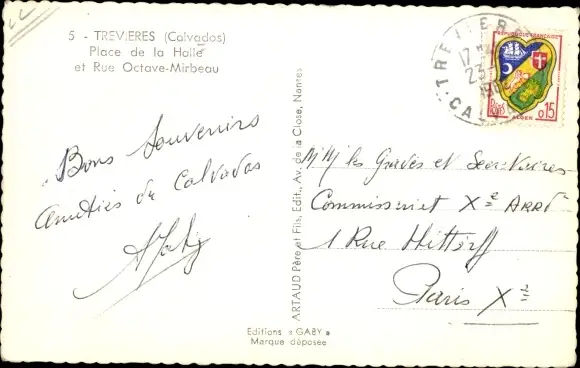 5 - TREVIERES (Calvados)
Place de la Halle
et Rue Octave-Mirbeau
Bons Souvenirs
Amitiés du Calvados
ARTAUD Père et Fils, Edit., Av. de la Close, Nantes
Editions « GABY »
Marque déposée
REPUBLIQUE FRANÇAISE
POSTES
ALGER
0,15
TREVIERES
17 H
23-
CALV
MM les Gradés et Secrétaires
Commissariat Xe ARRt
1 Rue Hittorff
Paris Xe